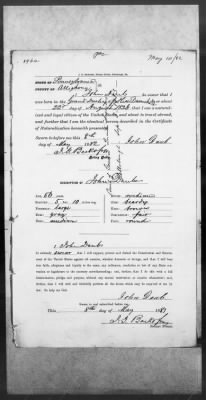 1960
May 10/82
STATE OF Pennsylvania
COUNTY OF Allegheny
I, John Daub do swear that I
was born in the Grand Duchy of Hesse Darmstadt on or about
22d day of August 1826 that I am a natural-
ized and loyal citizen of the United States, and about to travel abroad,
and further that I am the identical person described in the certificate
of Naturalization herewith presented.
Sworn to before me this 8th
day of May 1882
John Daub
DESCRIPTION OF John Daub
Age, 56 years
medium
Stature, 5 feet 10 inches
large
brown
gray
fair
medium
round
I, John Daub
do solemnly swear that I will support, protect and defend the Constitution and Government
of the United States against all enemies, whether domestic or foreign, and that I will bear
true faith, allegiance and loyalty to the same, any ordinance, resolution or law of any State
or legislature to the contrary notwithstanding; and further, that I do this with a full
determination, pledge and purpose, without any mental reservation or evasion whatsoever;
and further, that I will well and faithfully perform all the duties which may be required of me by law.
So help me God.
John Daub
Sworn to and subscribed before me
This 8th day of May 1882
Notary Public.